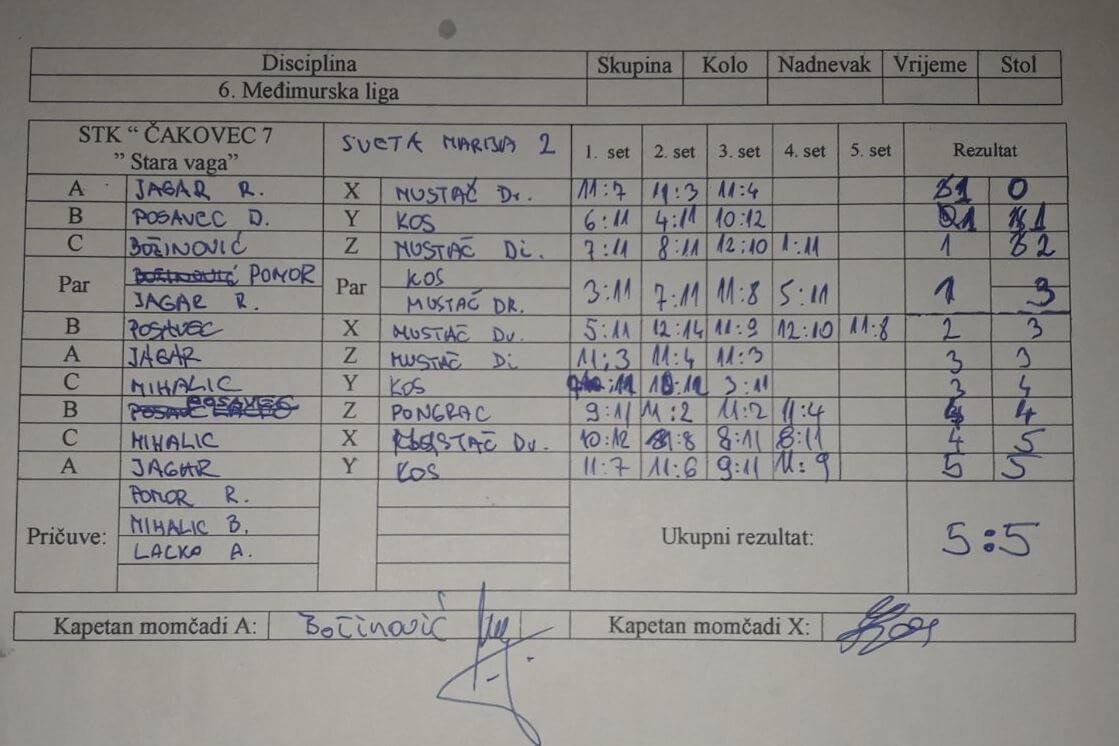 Disciplina Skupina Kolo Nadnevak Vrijeme Stol
6. Međimurska liga
STK “ ČAKOVEC 7 ” Stara vaga” SVETA MARIJA 2 1. set 2. set 3. set 4. set 5. set Rezultat
A JAGAR R. X MUSTAČ Dr. 11:7 11:3 11:4 1 0
B POSAVEC D. Y KOS 6:11 4:11 10:12 1 1
C BOŽINOVIĆ Z MUSTAČ Di. 7:11 8:11 12:10 1:11 1 2
Par POMOR Par KOS 3:11 7:11 11:8 5:11 1 3
JAGAR R. MUSTAČ DR.
B POSAVEC X MUSTAČ Dv. 5:11 12:14 11:9 12:10 11:8 2 3
A JAGAR Z MUSTAČ Di 11:3 11:4 11:3 3 3
C MIHALIC Y KOS :11 10:12 3:11 3 4
B POSAVEC Z PONGRAC 9:11 11:2 11:2 11:4 4 4
C MIHALIC X MUSTAČ Dv. 10:12 11:8 8:11 8:11 4 5
A JAGAR Y KOS 11:7 11:6 9:11 11:9 5 5
Pričuve: POMOR R. Ukupni rezultat: 5:5
MIHALIC B.
LACKO A.
Kapetan momčadi A: Božinović Kapetan momčadi X: